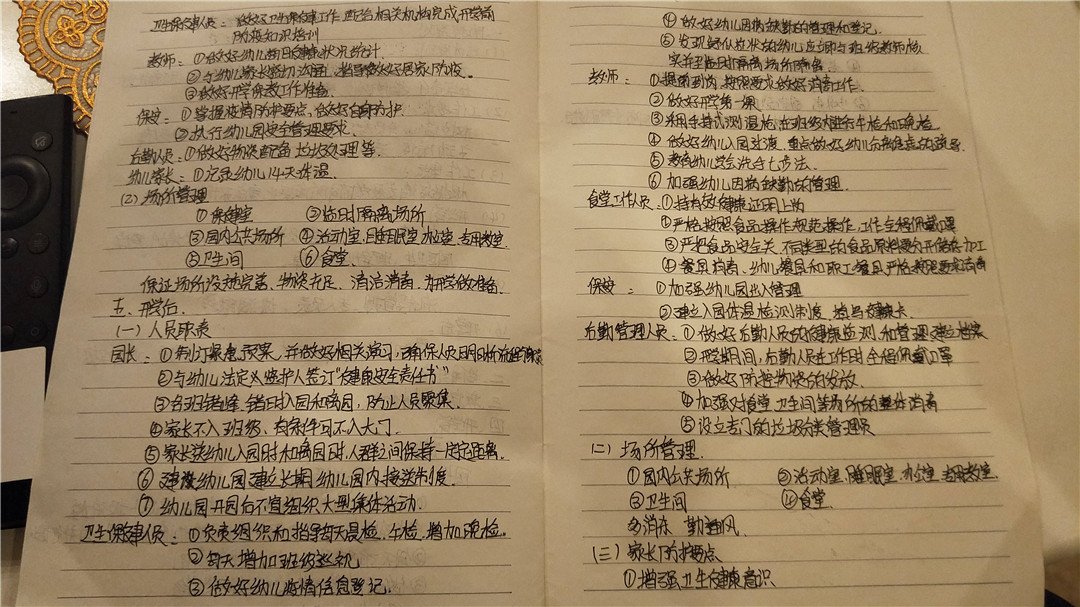 卫生保健人员:做好卫生保健工作,配合相关机构完成开学前
防疫知识培训
教师:①做好幼儿每日健康状况统计.
②与幼儿家长密切沟通,指导做好居家防疫。
③做好开学保教工作准备.
保安:①掌握疫情防护要点,做好自身防护
②执行幼儿园安全管理要求.
后勤人员:①做好物资配备,垃圾处理等.
幼儿家长:①记录幼儿14天体温.
(2)场所管理
①保健室 ②临时隔离场所
③园内公共场所 ④活动室、睡眠室、办公室、专用教室.
⑤卫生间 ⑥食堂、
保证场所设施完善、物资充足、清洁消毒,为开学做准备.
五、开学后.
(一)人员职责
园长:①制订应急预案,并做好相关演习,确保人员明晰流程
②与幼儿法定义监护人签订“健康安全责任书”
③各班错峰、错时入园和离园,防止人员聚集.
④家长不入班级,有条件可不入大门.
⑤家长送幼儿入园时和离园时,人群之间保持一定距离.
⑥建议幼儿园建立长期幼儿园内接送制度.
⑦幼儿园开园后不宜组织大型集体活动.
卫生保健人员:①负责组织和指导每天晨检、午检,增加晚检。
②每天增加班级巡视
③做好幼儿疫情信息登记.
④做好幼儿因病缺勤的管理和登记.
⑤发现疑似症状的幼儿应立即与班级教师核
实并至临时隔离场所隔离.
教师:①提前到岗,按照要求做好消毒工作.
②做好开学第一课
③采用手持式测温枪在班级进行午检和晚检.
④做好幼儿入园过渡,重点做好幼儿分离焦虑的疏导.
⑤教会幼儿洗手七步法.
⑥加强幼儿因病缺勤的管理.
食堂工作人员:①持有效健康证明上岗
②严格按照食品操作规范操作,工作全程佩戴口罩
③严把食品安全关,不同类型的食品原料要分开储存、加工
④餐具消毒,幼儿餐具和职工餐具严格按照要求消毒
保安:①加强幼儿园出入管理
②建立入园体温检测制度,
后勤管理人员:①做好后勤人员的健康监测和管理,建立档案
②开学期间,后勤人员在工作时全程佩戴口罩
③做好防控物资的发放.
④加强对食堂、卫生间等场所的整体消毒
⑤设立专门的垃圾分类管理员
(二)场所管理.
①园内公共场所 ②活动室、睡眠室、办公室、专用教室.
③卫生间 ④食堂.
多消杀,勤通风.
(三)家长防护要点
①增强卫生健康意识